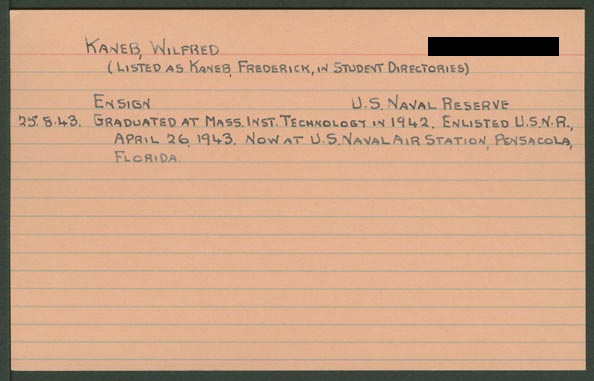 KANEB, WILFRED
(LISTED AS KANEB, FREDERICK, IN STUDENT DIRECTORIES)
ENSIGN U.S. NAVAL RESERVE
25.8.43. GRADUATED AT MASS. INST. TECHNOLOGY IN 1942. ENLISTED U.S.N.R.,
APRIL 26, 1943. NOW AT U.S. NAVAL AIR STATION, PENSACOLA,
FLORIDA.